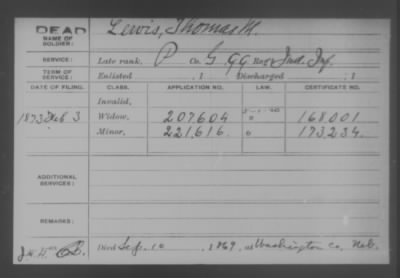 DEAD
NAME OF SOLDIER: Lewis, Thomas M.
SERVICE: Late rank, P Co. G 99 Reg't Ind. Inf.
TERM OF SERVICE: Enlisted , 1 Discharged , 1
DATE OF FILING. CLASS. APPLICATION NO. LAW. CERTIFICATE NO.
Invalid,
1873 Feb 3 Widow, 207.604 " 168001
Minor, 221.616. " 173.234.
ADDITIONAL SERVICES:
REMARKS:
Died Sep. 10 , 1869, at Washington Co, Neb.